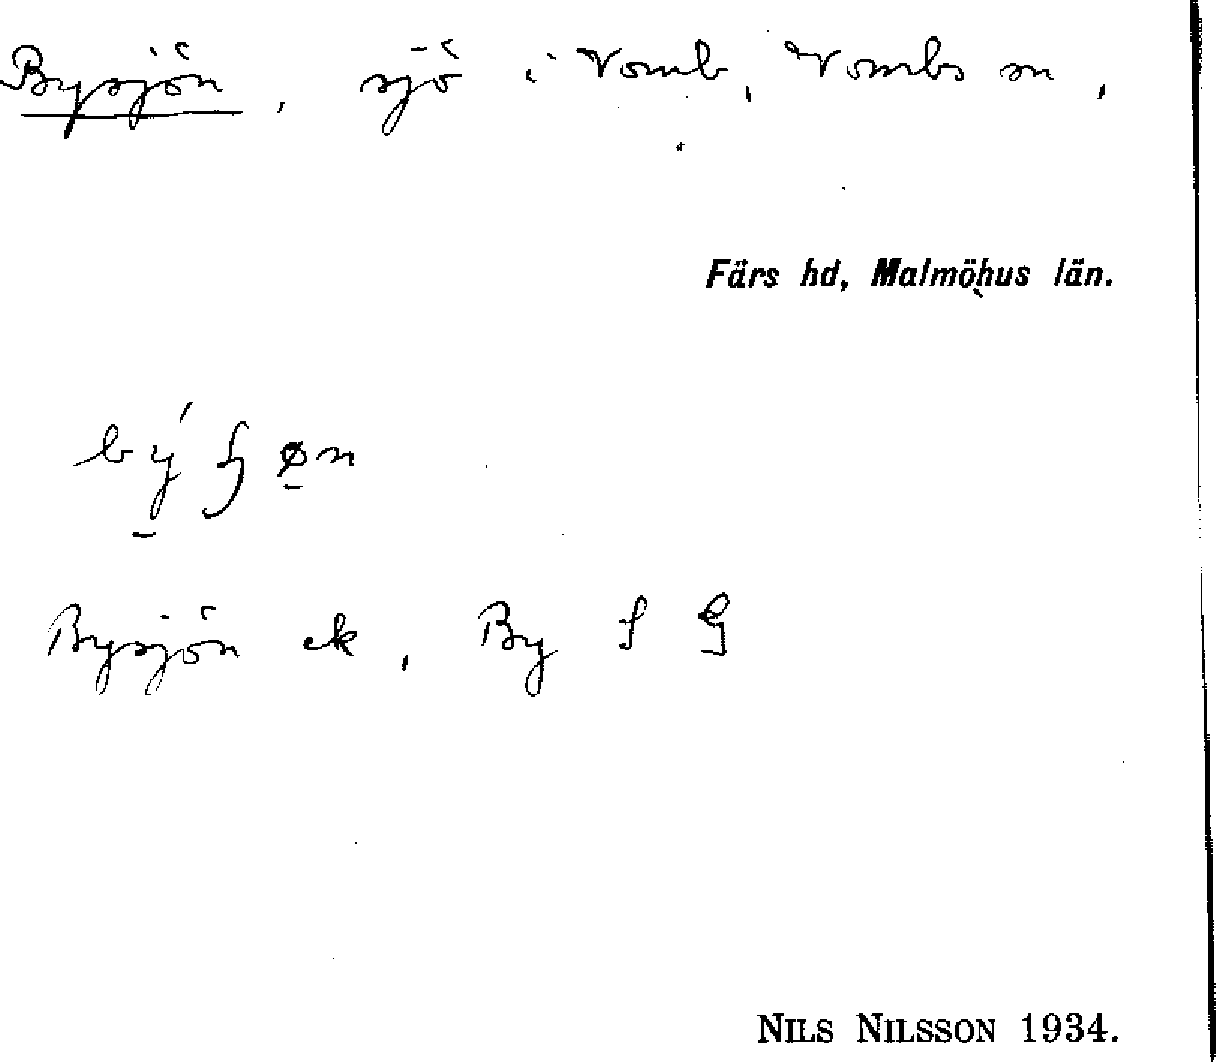 Bysjön, sjö i Vomb, Vombs sn,
Färs hd, Malmöhus län.
Bysjön ek, By S G
NILS NILSSON 1934.